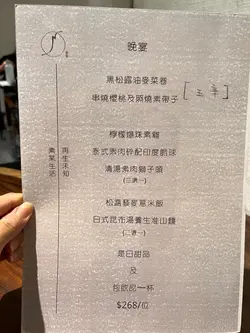 晚宴
黑松露油麥菜卷
串燒櫻桃及照燒素帶子
檸檬爆珠素雞
泰式素肉碎配印度脆球
清湯素肉獅子頭
(三選一)
松露藜麥薏米飯
日式昆布湯養生淮山麵
(二選一)
是日甜品
及
包飲品一杯
$268/位
再生未知
素氣生活